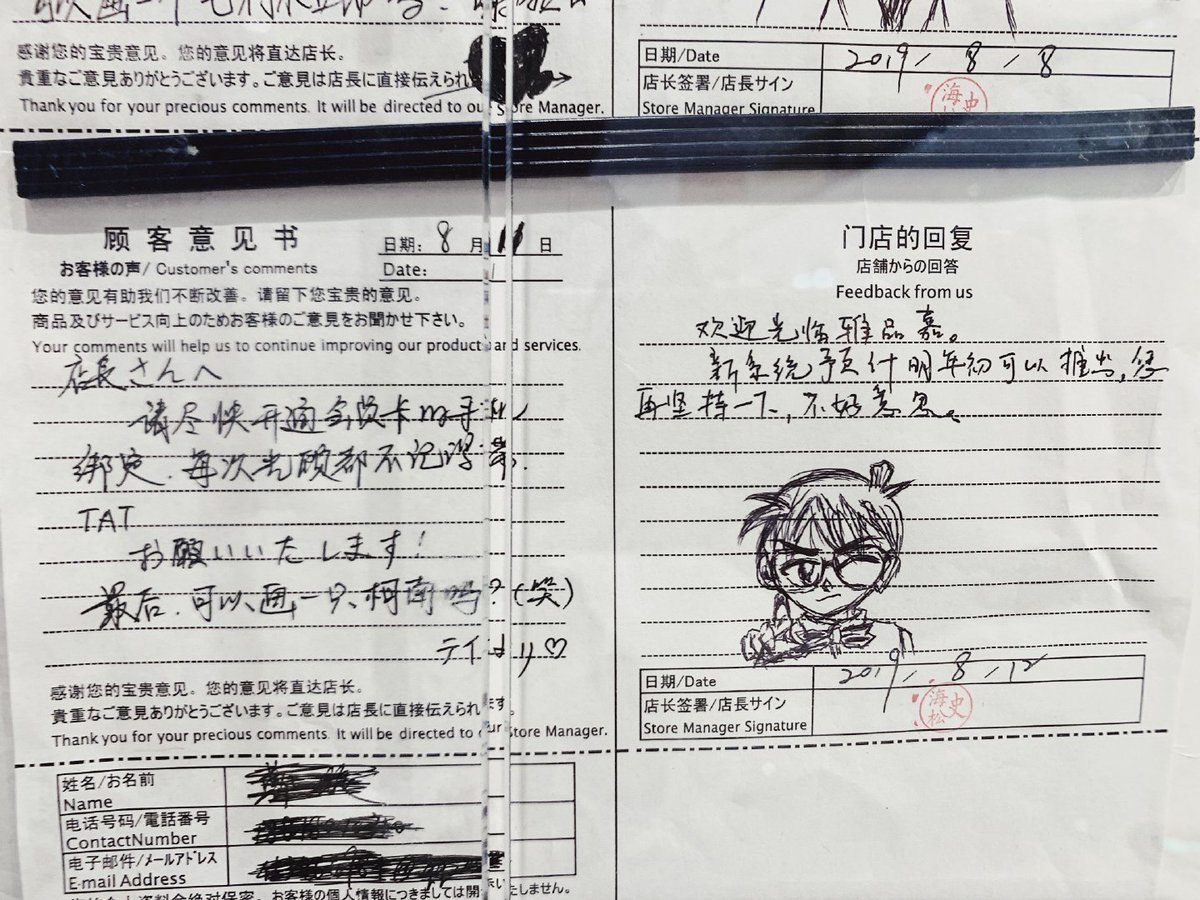 感谢您的宝贵意见。您的意见将直达店长。
貴重なご意見ありがとうございます。ご意見は店長に直接伝えられ
Thank you for your precious comments. It will be directed to our Store Manager.
日期/Date 2019/8/8
店长签署/店長サイン
Store Manager Signature
顾客意见书
お客様の声/ Customer's comments
日期: 8月11日
Date:
您的意见有助我们不断改善。请留下您宝贵的意见。
商品及びサービス向上のためお客様のご意見をお聞かせ下さい。
Your comments will help us to continue improving our product and services.
店長さんへ
请尽快开通会员卡的手机
绑定.每次光顾都不记得带.
TAT
お願いいたします!
最后.可以画一只柯南吗?(笑)
感谢您的宝贵意见。您的意见将直达店长。
貴重なご意見ありがとうございます。ご意見は店長に直接伝えられます。
Thank you for your precious comments. It will be directed to our Store Manager.
姓名/お名前
Name
电话号码/電話番号
ContactNumber
电子邮件/メールアドレス
E-mail Address
门店的回复
店舗からの回答
Feedback from us
欢迎光临雅品嘉。
新系统预计明年初可以推出,您
再坚持一下,不好意思。
日期/Date 2019/8/12
店长签署/店長サイン 海松史
Store Manager Signature